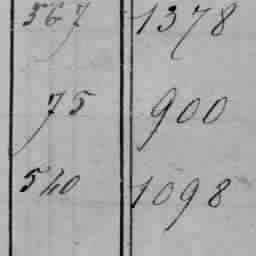 567 1378
75 900
540 1098